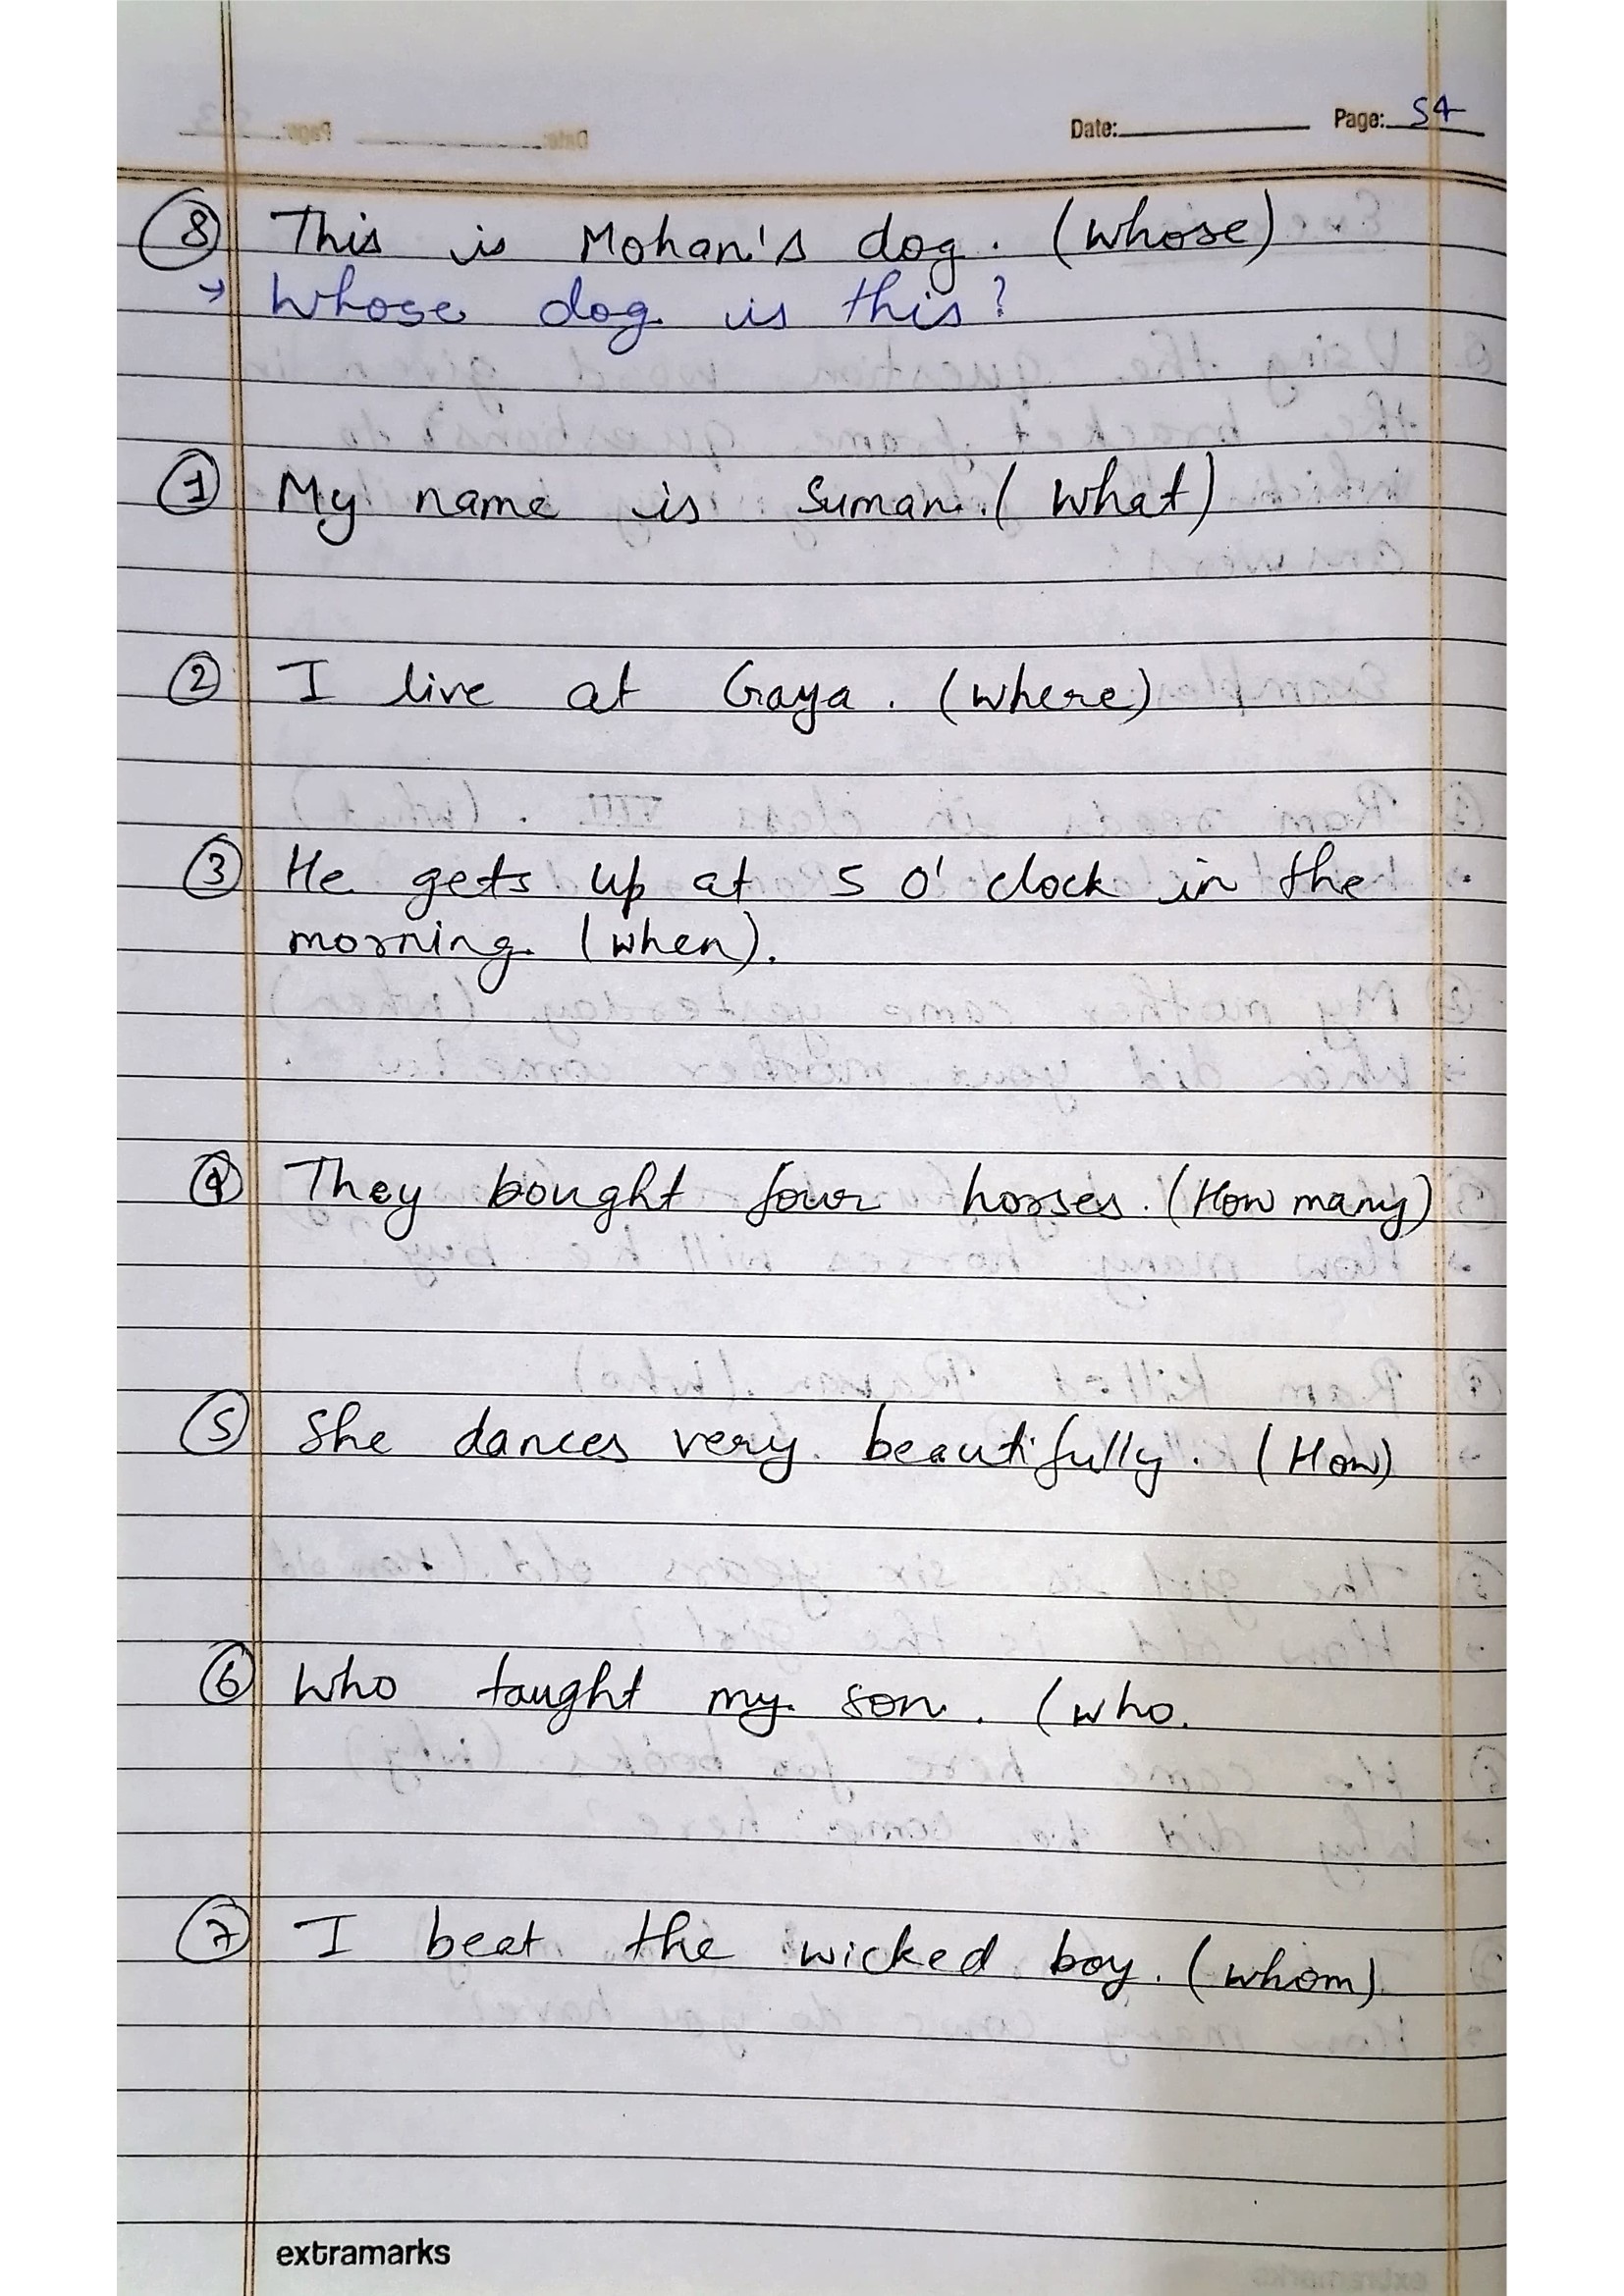 Date: Page: 54
⑧ This is Mohan's dog. (whose)
→ Whose dog is this?
① My name is Suman. (what)
② I live at Gaya. (where)
③ He gets up at 5 o'clock in the
morning. (when).
④ They bought four horses. (How many)
⑤ She dances very beautifully. (How)
⑥ Who taught my son. (who.
⑦ I beat the wicked boy. (whom)
extramarks